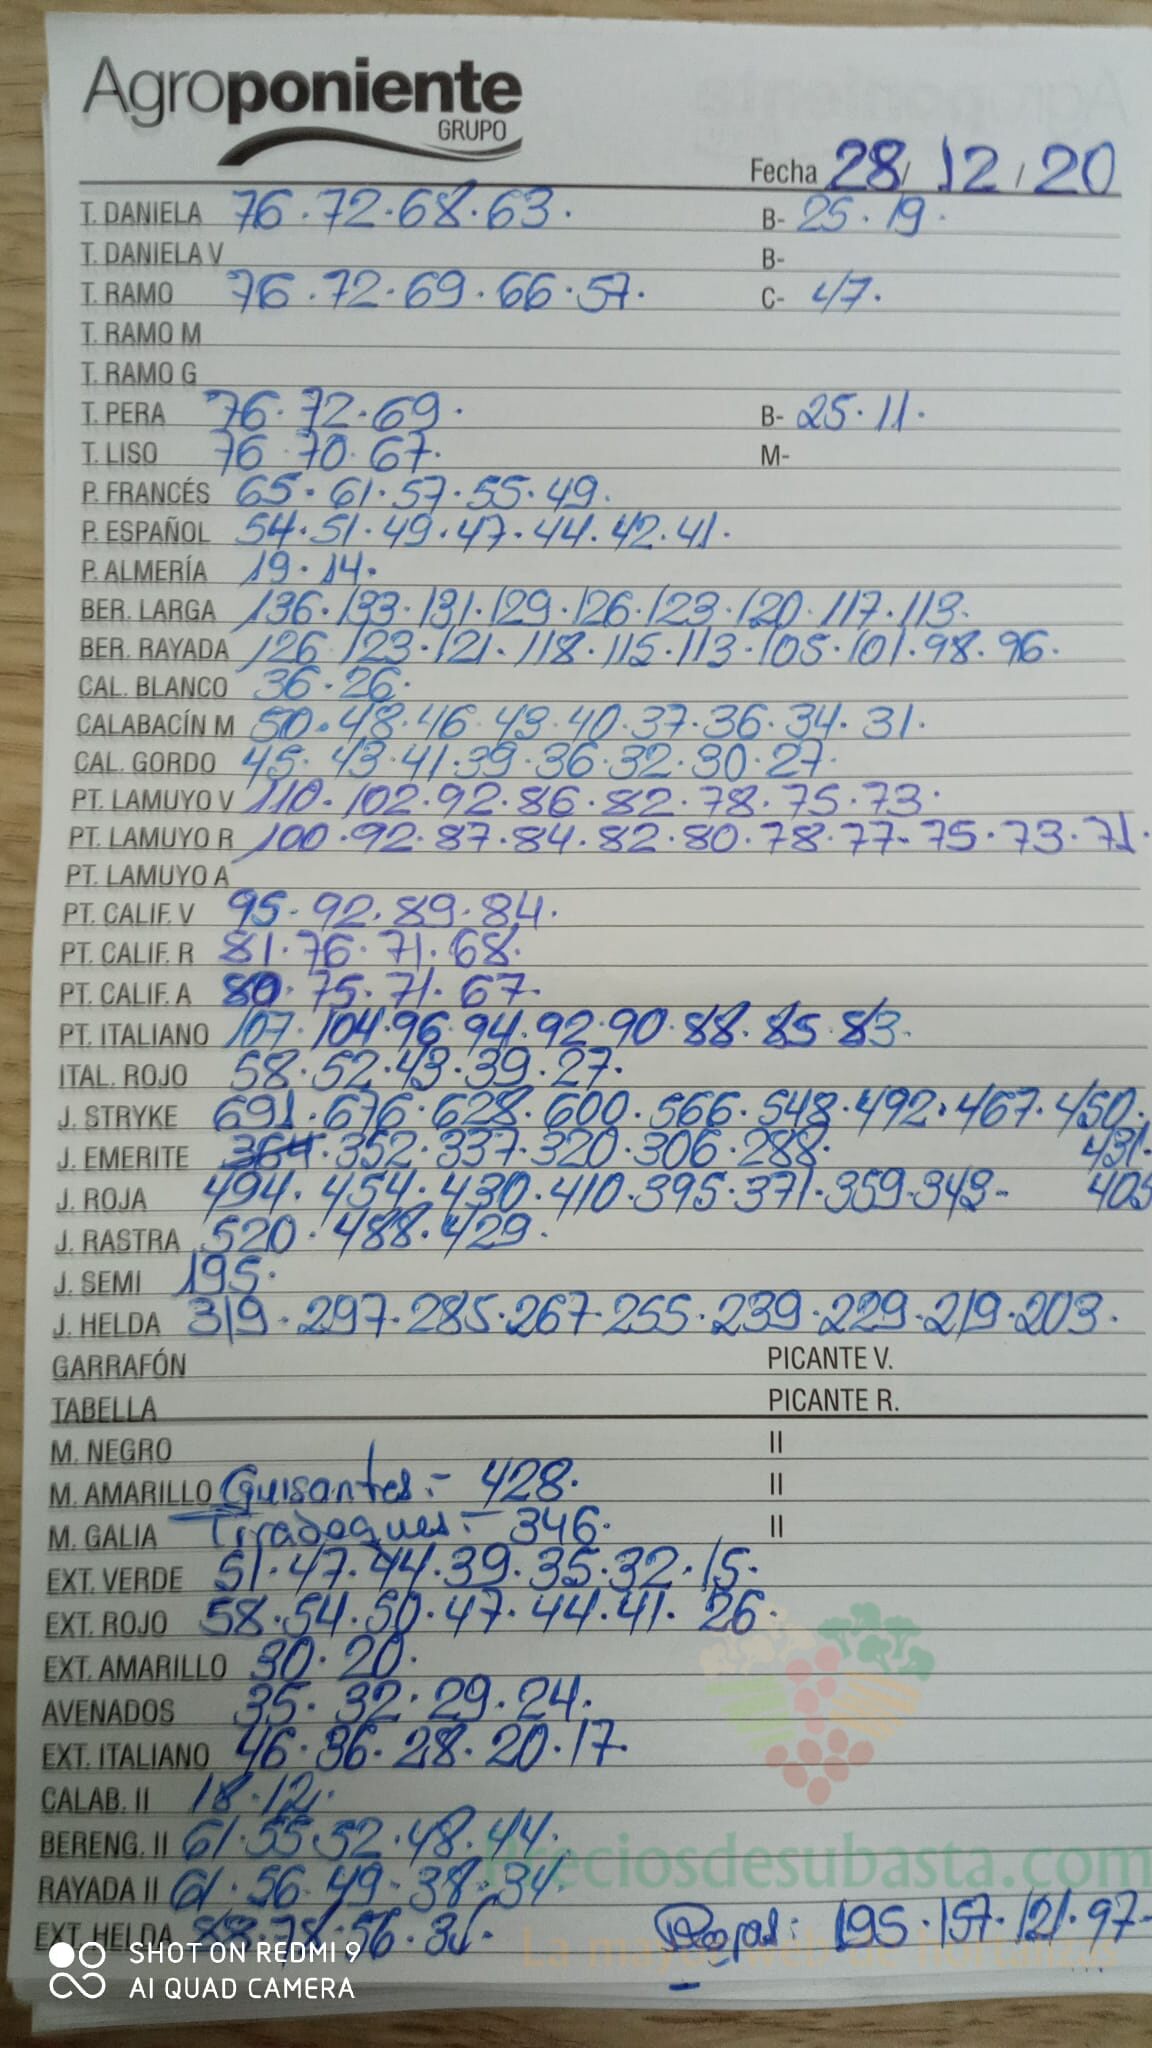 Agroponiente
GRUPO
Fecha 28/12/20
T. DANIELA 76.72.68.63. B- 25.19.
T. DANIELA V B-
T. RAMO 76.72.69.66.57. C- 47.
T. RAMO M
T. RAMO G
T. PERA 76.72.69. B- 25.11.
T. LISO 76 70.67. M-
P. FRANCÉS 65.61.57.55.49.
P. ESPAÑOL 54.51.49.47.44.42.41.
P. ALMERÍA 19.14.
BER. LARGA 136.133.131.129.126.123.120.117.113.
BER. RAYADA 126 123.121.118.115.113.105.101.98.96.
CAL. BLANCO 36.26.
CALABACÍN M 50.48.46 43.40.37.36.34.31.
CAL. GORDO 45.43.41.39.36.32.30.27.
PT. LAMUYO V 110.102.92.86.82.78.75.73.
PT. LAMUYO R 100.92.87.84.82.80.78.77-75.73.71.
PT. LAMUYO A
PT. CALIF. V 95.92.89.84.
PT. CALIF. R 81.76.71.68.
PT. CALIF. A 80.75.71.67.
PT. ITALIANO 107.104.96.94.92.90.88.85.83.
ITAL. ROJO 58.52.43.39.27.
J. STRYKE 691.676.628.600.566.548.492.467.450.
J. EMERITE 364.352.337.320.306.288. 431.
J. ROJA 494.454.430.410.395.371.359.343- 405
J. RASTRA 520.488.429.
J. SEMI 195.
J. HELDA 319.297.285.267.255.239.229.219.203.
GARRAFÓN PICANTE V.
TABELLA PICANTE R.
M. NEGRO II
M. AMARILLO Guisantes:- 428. II
M. GALIA Tiradoques:- 346. II
EXT. VERDE 51.47.44.39.35.32.15.
EXT. ROJO 58.54.50.47.44.41. 26.
EXT. AMARILLO 30.20.
AVENADOS 35.32.29.24.
EXT. ITALIANO 46.36.28.20.17.
CALAB. II 18.12.
BERENG. II 61.55.52.48.44.
Preciosdesubasta.com
RAYADA II 61.56.49.38.34.
EXT. HELDA 88.78.56.35. Rojas: 195.157.121.97-
La mayor web de hortalizas
SHOT ON REDMI 9
AI QUAD CAMERA